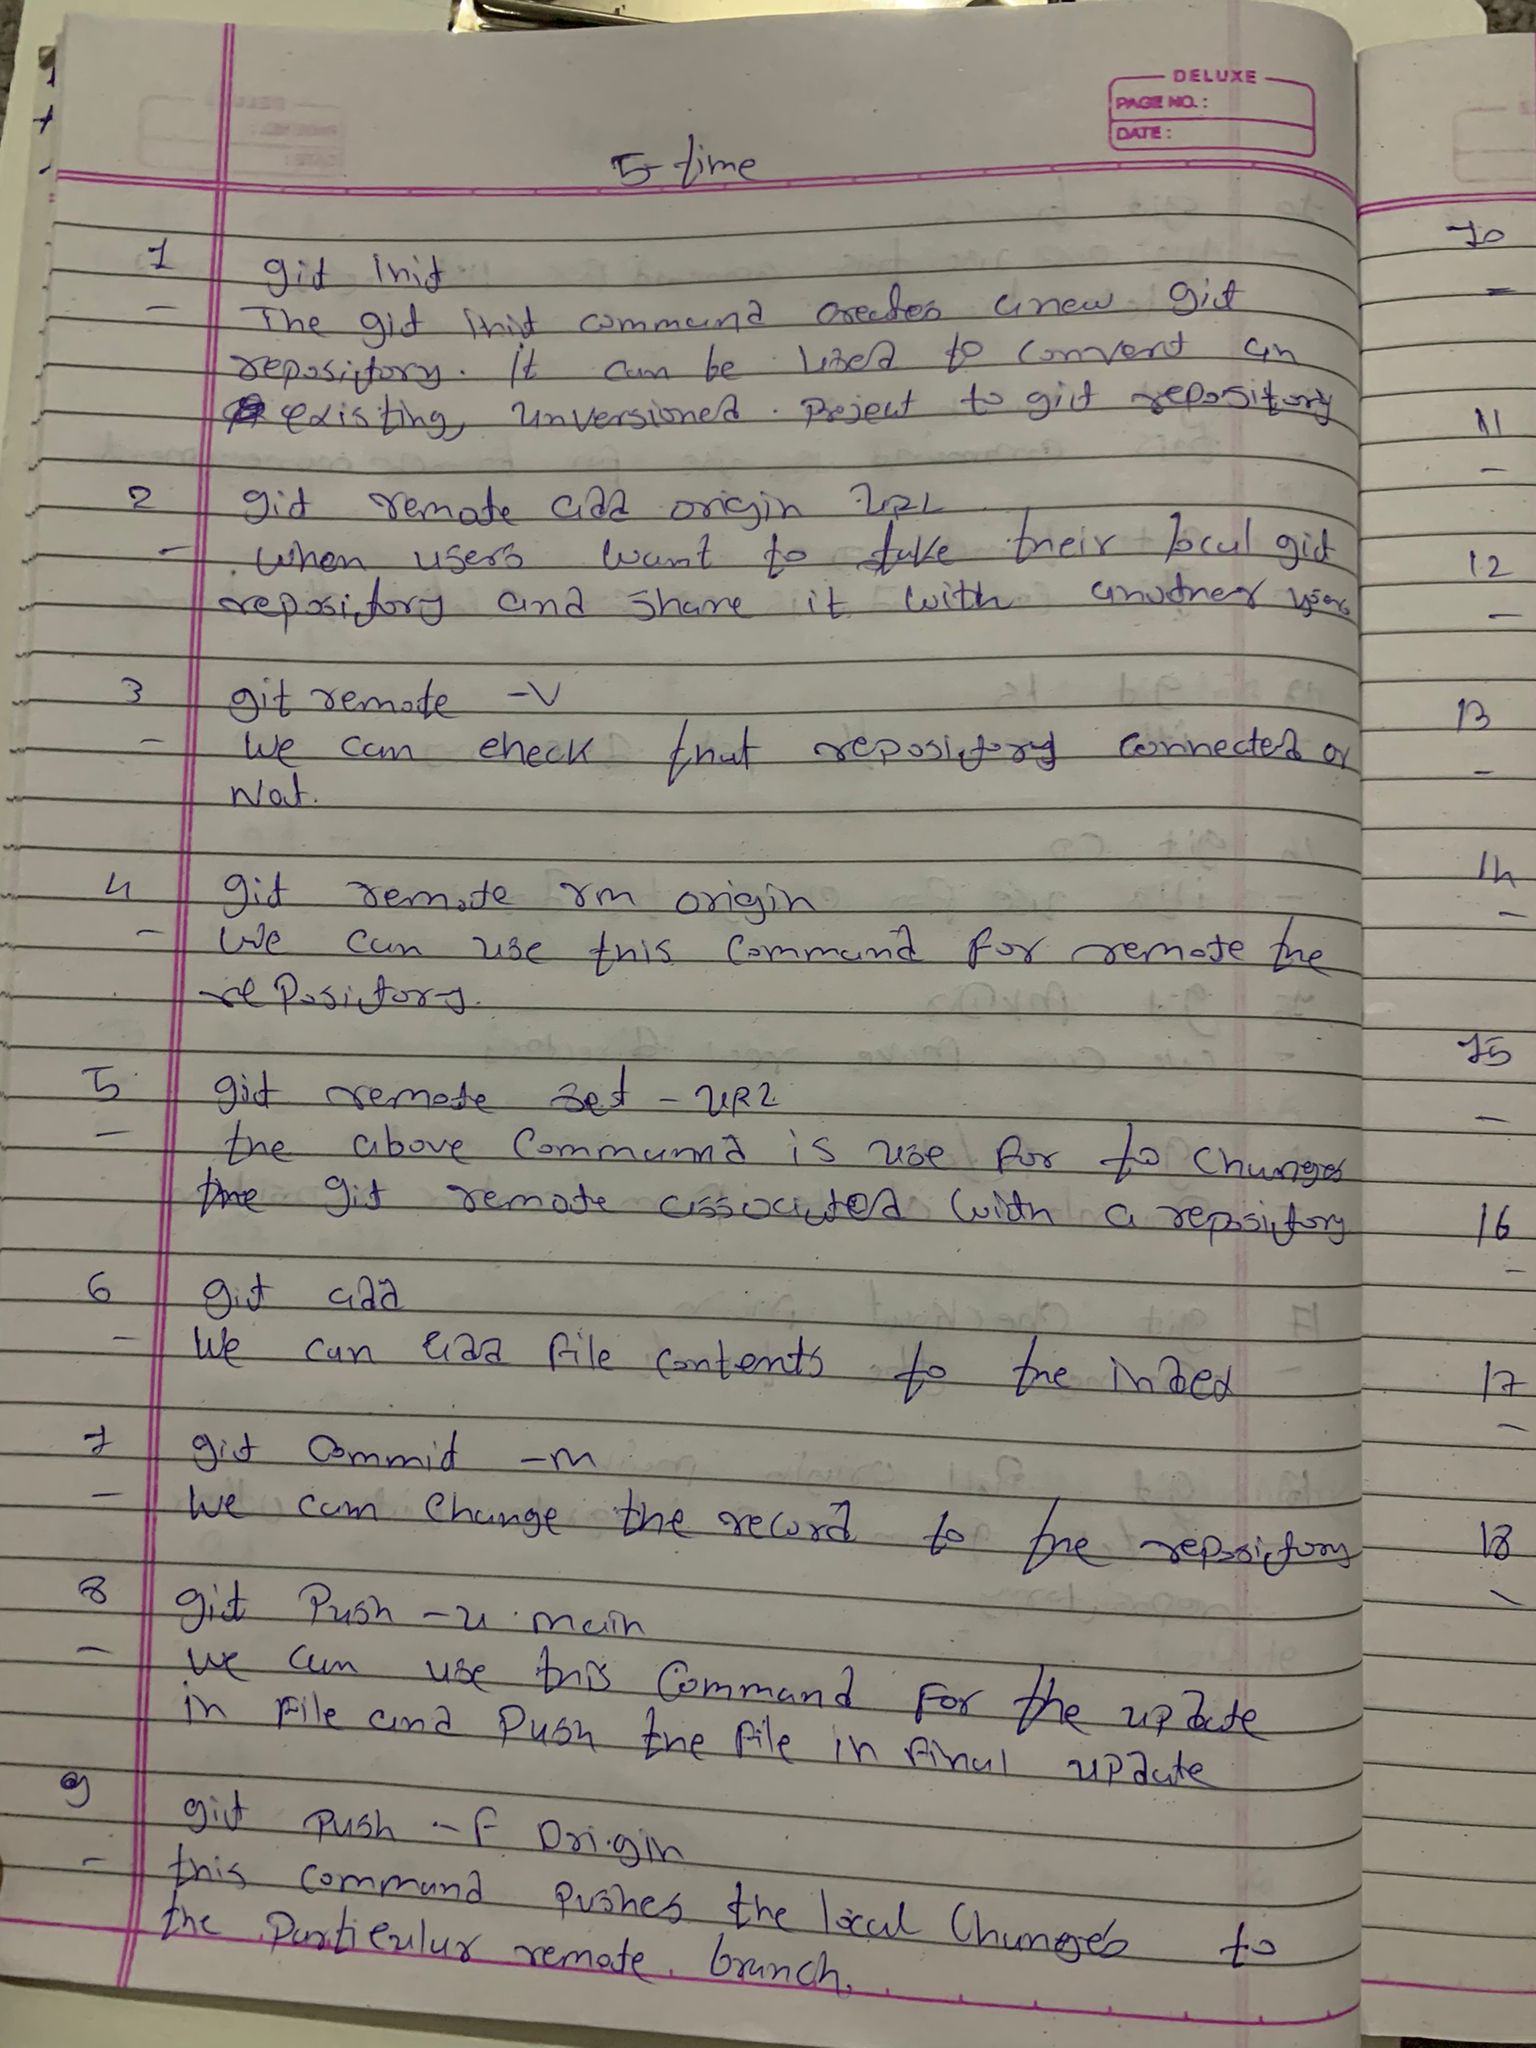 DELUXE
PAGE NO.:
DATE:
5-time
1 git init
- The git init command creates a new git
repository. It can be used to convert an
existing, unversioned. Project to git repository
2 git remote add origin URL
- when users want to take their local git
repository and share it with another user
3 git remote -v
- We can check that repository connected or
Not.
4 git remote rm origin
- We can use this Command for remote the
rePository.
5 git remote set - URL
- the above Command is use for to changes
the git remote associated with a repository
6 git add
- We can add file contents to the index
7 git Commit -m
- We can change the record to the repository
8 git Push -u main
- we can use this Command for the update
in file and Push the file in final update
9 git Push -f Origin
- this Command pushes the local Changes to
the Particular remote. branch.
10
=
11
-
12
-
13
-
14
-
15
-
16
-
17
-
18
-